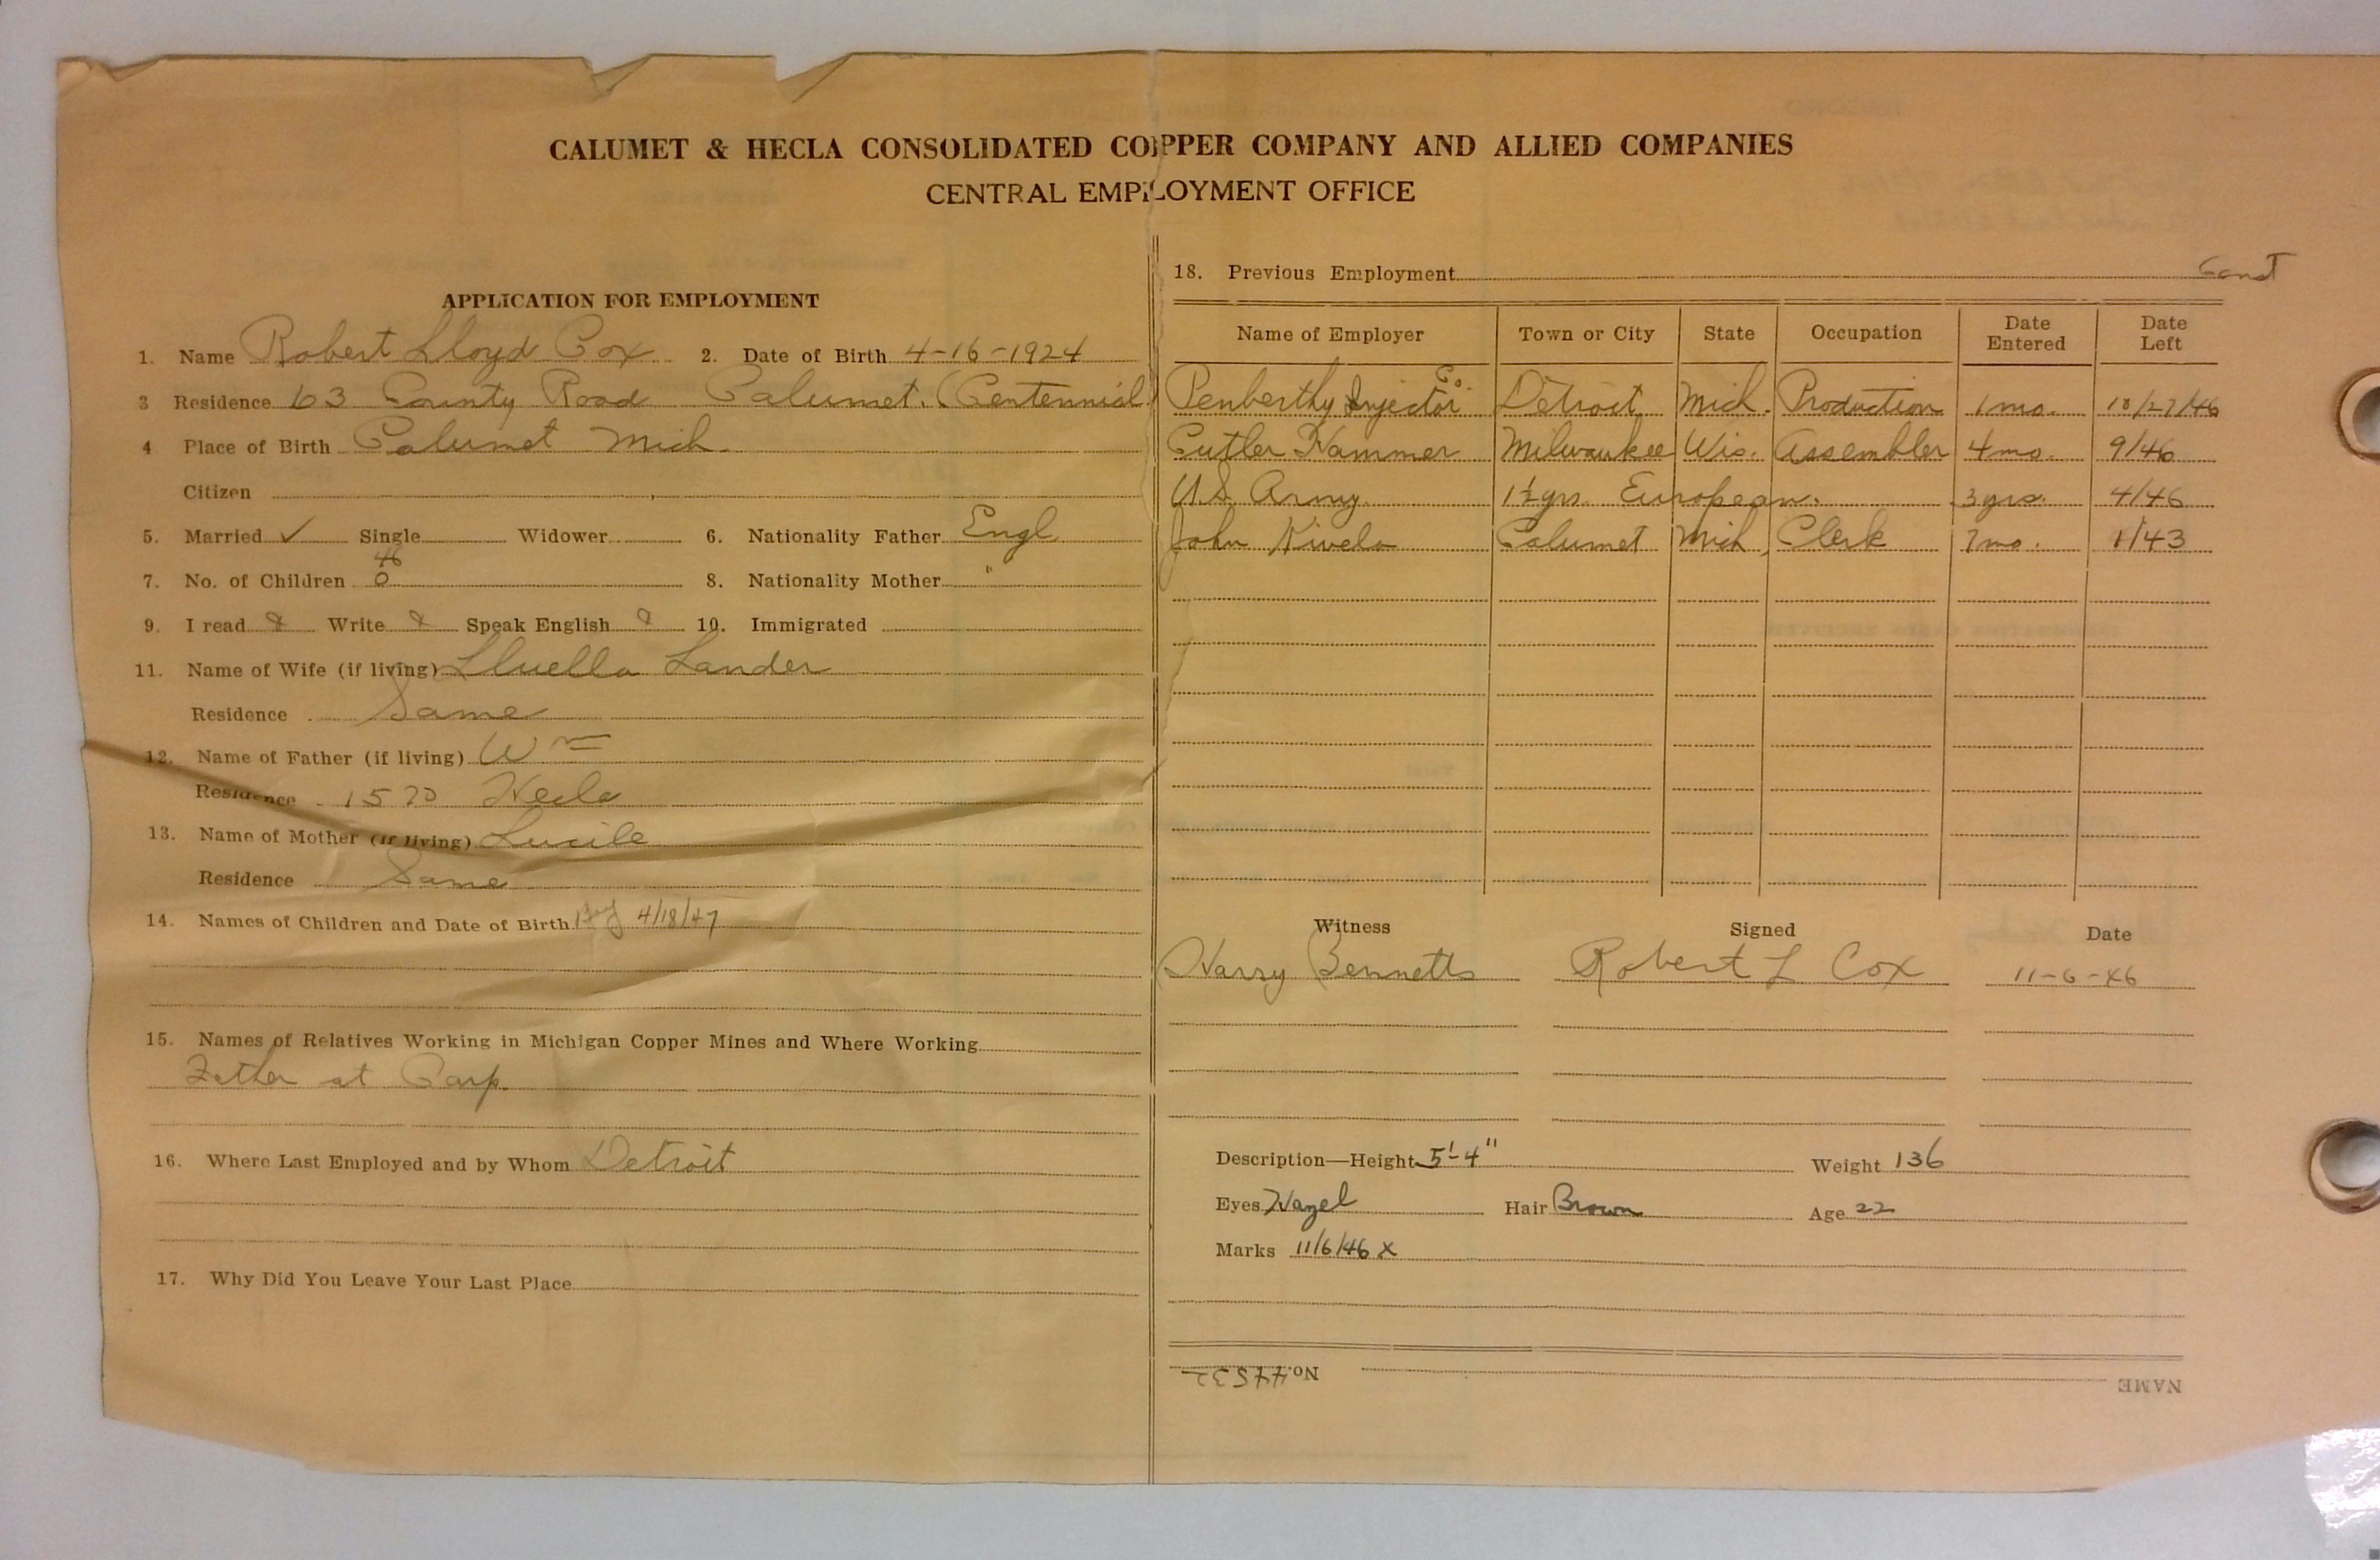 CALUMET & HECLA CONSOLIDATED COPPER COMPANY AND ALLIED COMPANIES
CENTRAL EMPLOYMENT OFFICE
APPLICATION FOR EMPLOYMENT
1. Name Robert Lloyd Cox 2. Date of Birth 4-16-1924
3 Residence 63 County Road Calumet. (Centennial)
4 Place of Birth Calumet Mich.
Citizen
5. Married ✓ Single Widower 6. Nationality Father Engl
46
7. No. of Children 0 8. Nationality Mother "
9. I read Write Speak English 10. Immigrated
11. Name of Wife (if living) Lluella Lander
Residence Same
12. Name of Father (if living) Wm
Residence 1570 Hecla
13. Name of Mother (if living) Lucile
Residence Same
14. Names of Children and Date of Birth Boy 4/18/47
15. Names of Relatives Working in Michigan Copper Mines and Where Working
Father at Carp.
16. Where Last Employed and by Whom Detroit
17. Why Did You Leave Your Last Place
18. Previous Employment
Name of Employer Town or City State Occupation Date Entered Date Left
Penberthy Injector Co. Detroit Mich. Production 1 mo. 10/27/46
Cutler Hammer Milwaukee Wis. Assembler 4 mo. 9/46
U.S. Army. 1½ yrs. European. 3 yrs. 4/46
John Kivela Calumet Mich. Clerk 7 mo. 1/43
Witness Signed Date
Harry Bennetts Robert L Cox 11-6-46
Description—Height 5'-4" Weight 136
Eyes Hazel Hair Brown Age 22
Marks 11/6/46 X
NAME No. 44532